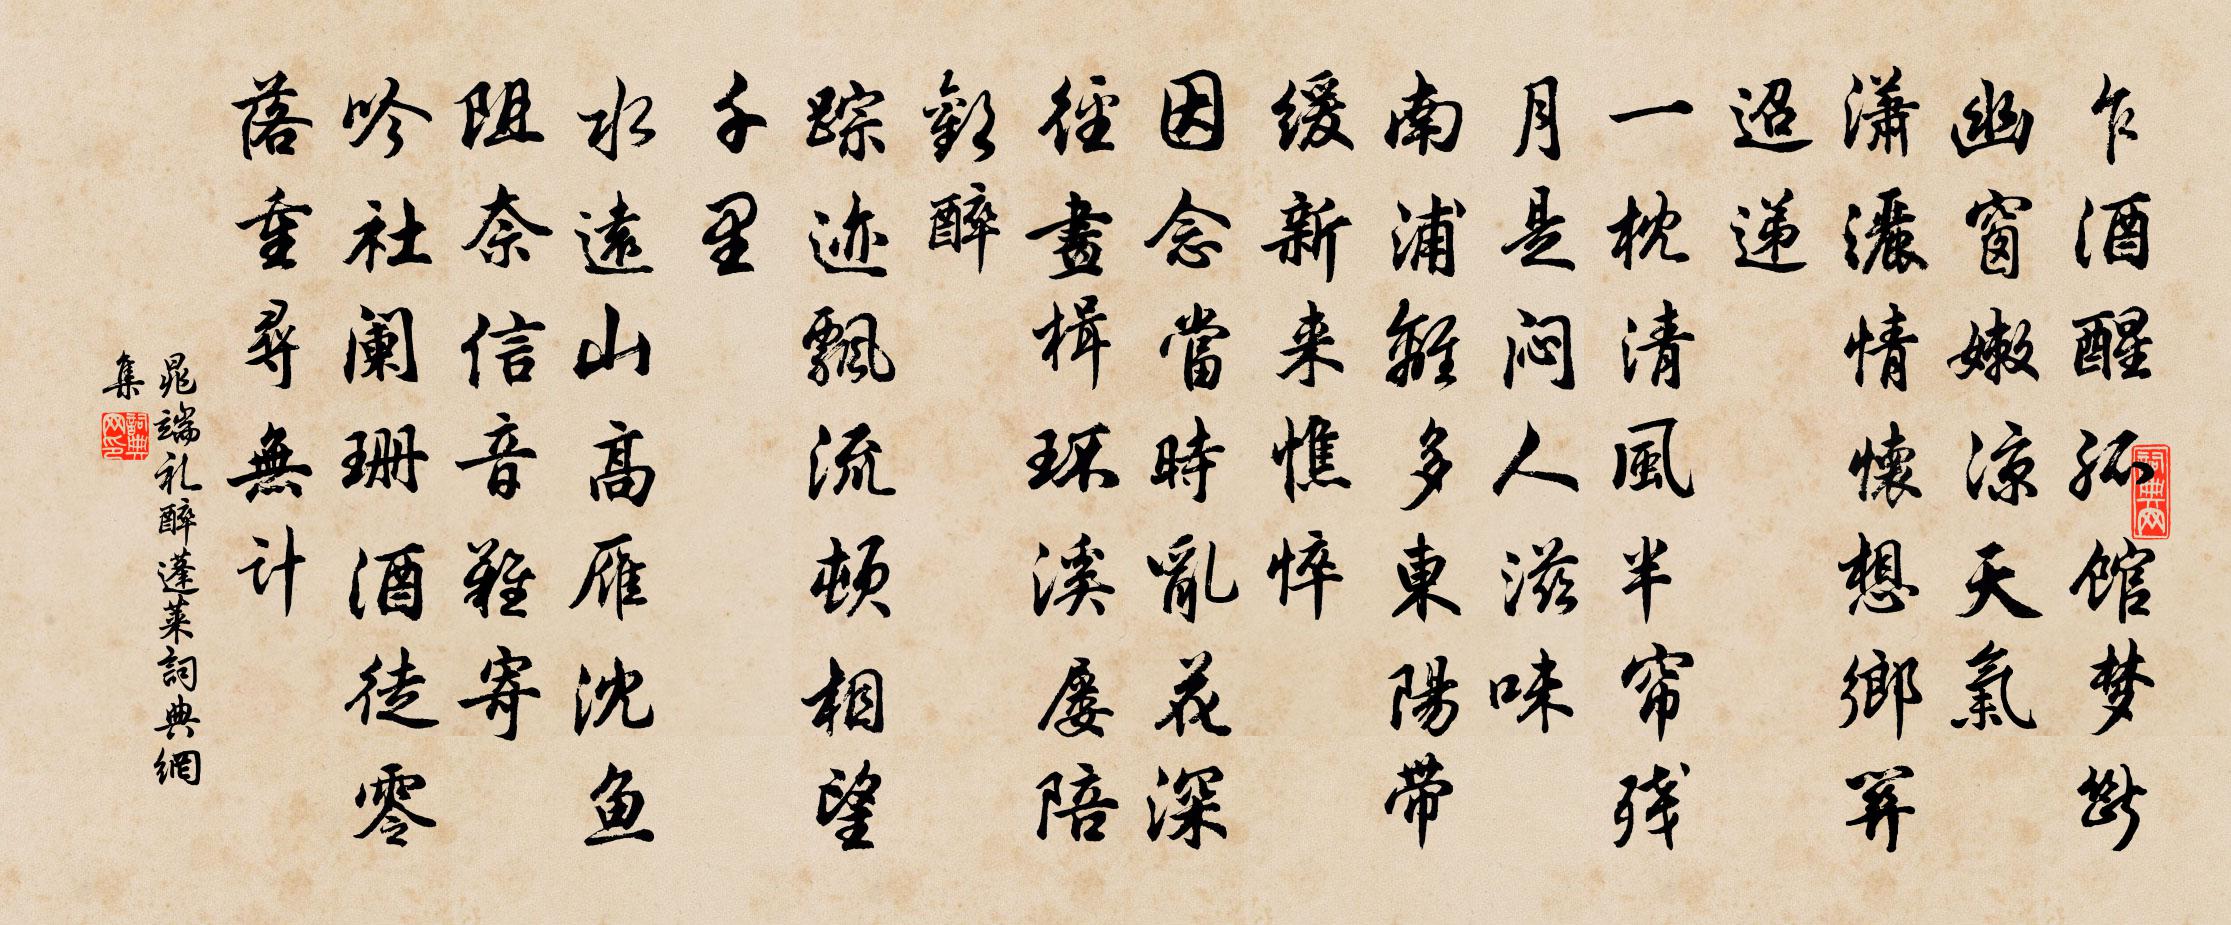 乍酒醒孤馆梦断
幽窗嫩凉天氣
潇灑情懷想鄉關
迢递
一枕清風半帘残
月是闷人滋味
南浦離多東陽带
缓新来憔悴
因念當時亂花深
徑畫楫环溪屡陪
歡醉
踪迹飄流顿相望
千里
水遠山高雁沈鱼
阻奈信音難寄
吟社阑珊酒徒零
落重尋無计
晁端礼醉蓬莱詞典網
集
詞典网印
詞典网